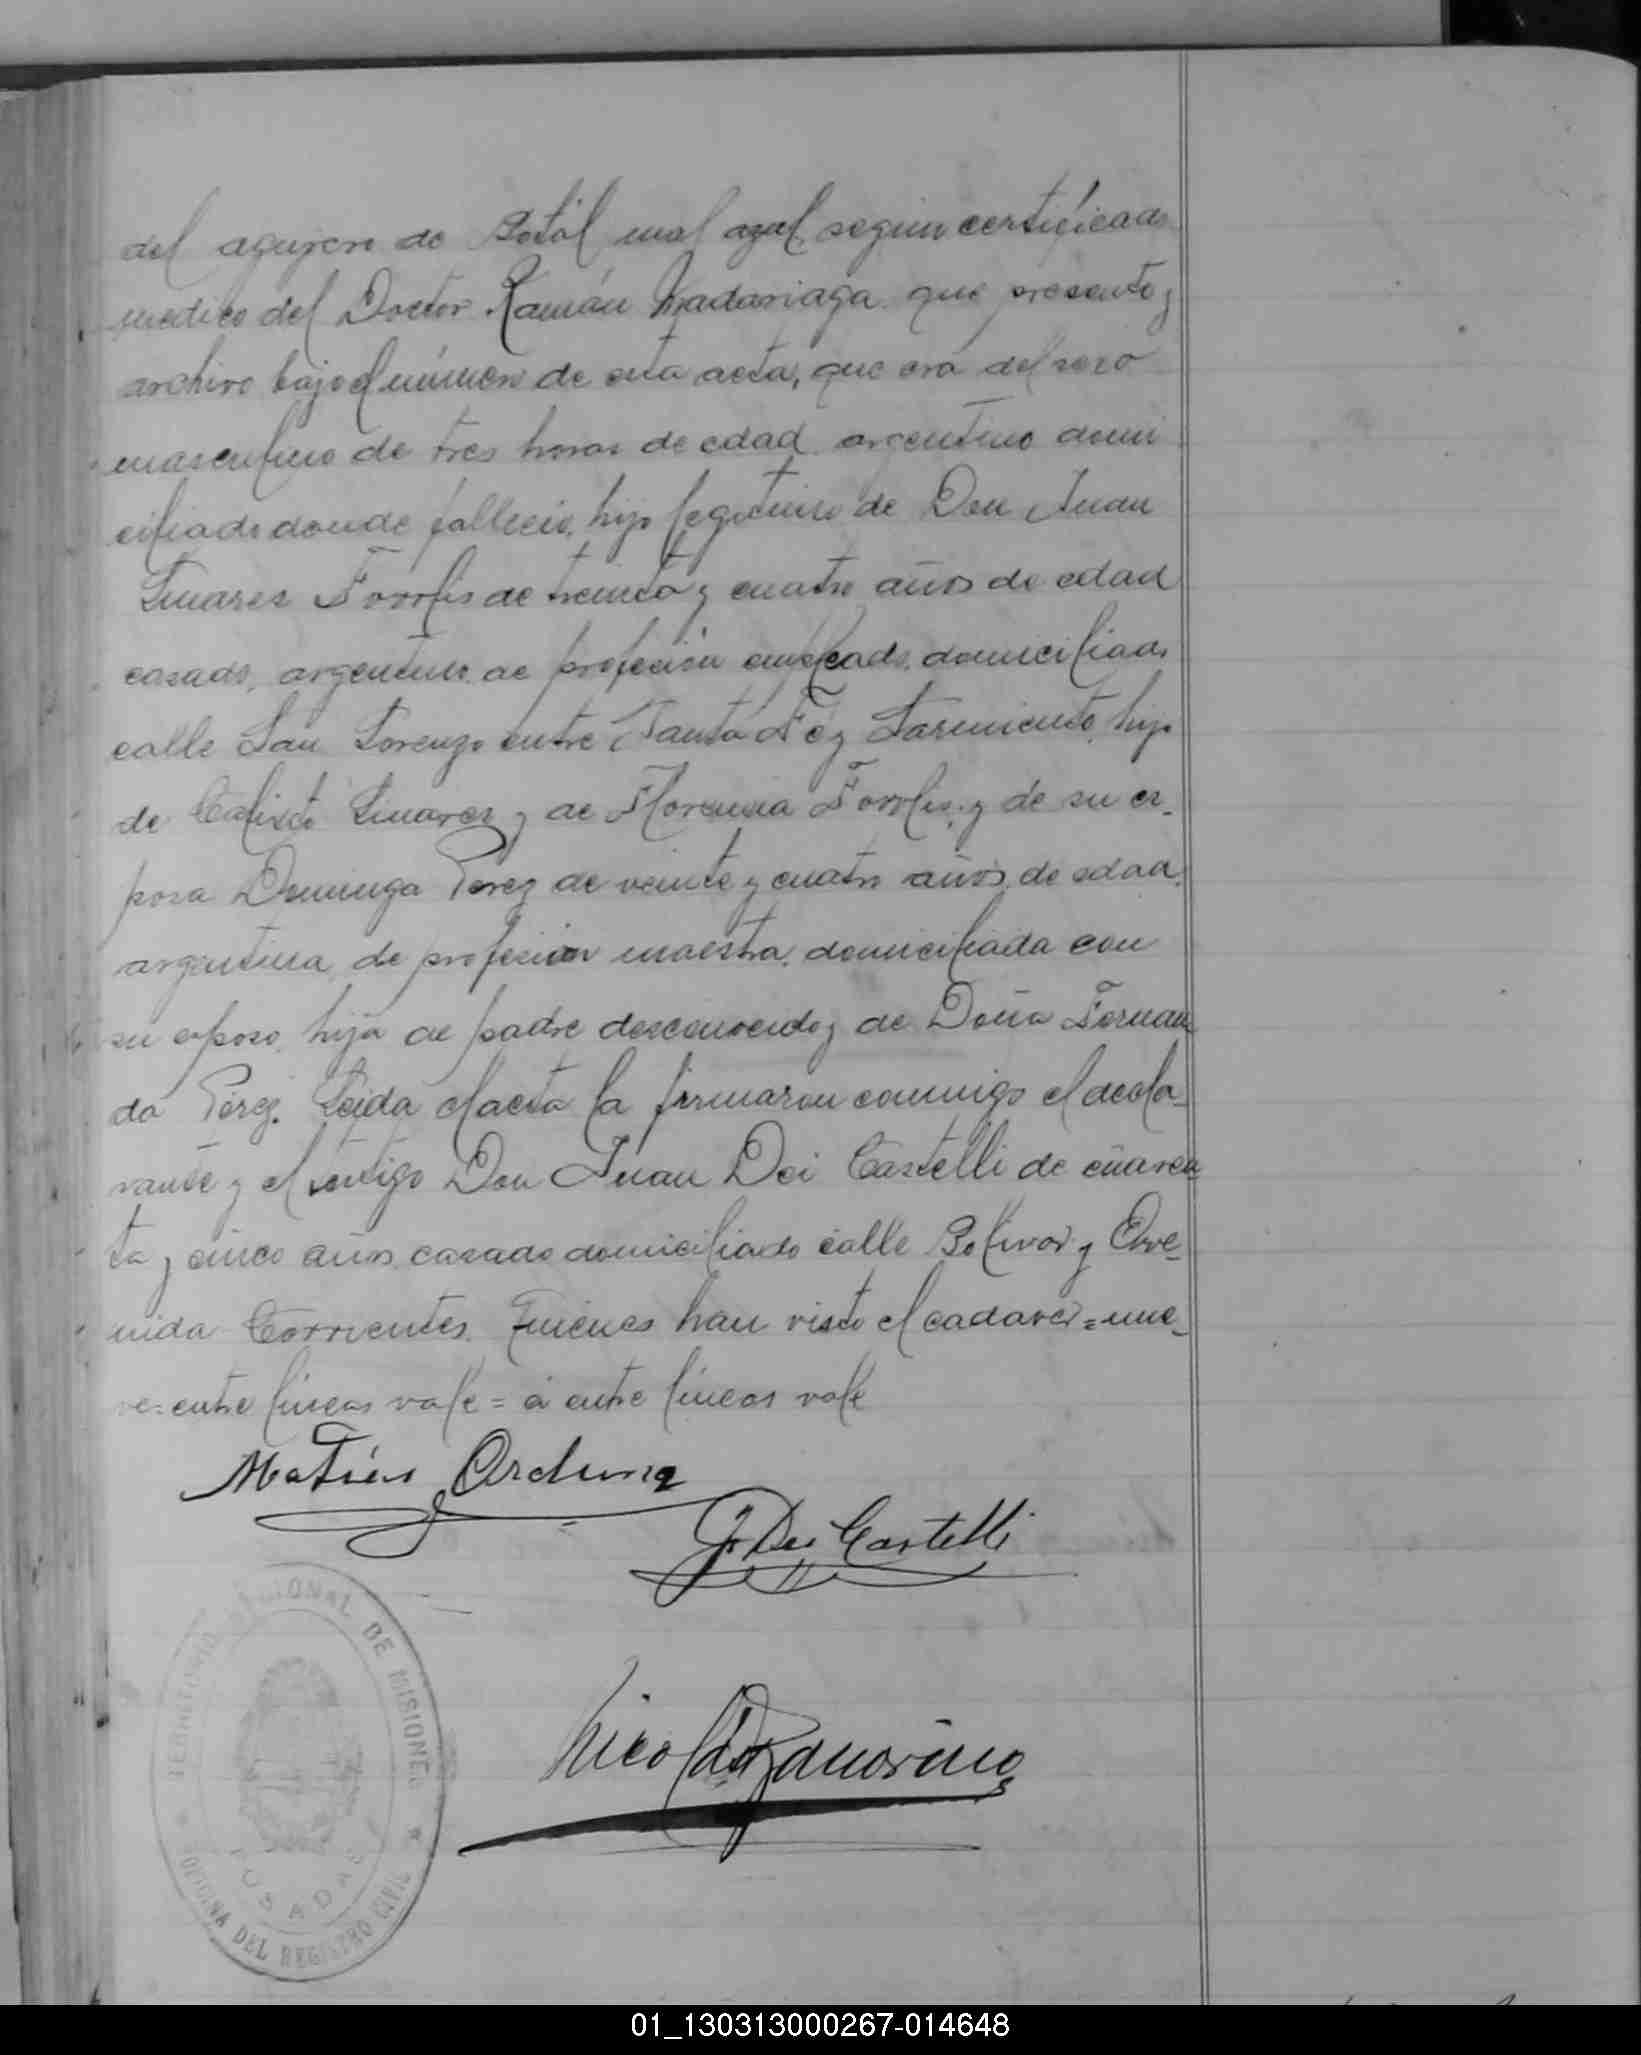 del agujero de Botal mal azul, segun certificado
medico del Doctor Ramón Madariaga que presento y
archivo bajo el número de esta acta, que era del sexo
masculino de tres horas de edad argentino domi
ciliado donde fallecio, hijo legitimo de Don Juan
Linares de treinta y cuatro años de edad
casado, argentino, de profesion empleado, domiciliado
calle San Lorenzo entre Santa Fé y Sarmiento, hijo
de Calisto Linares y de Florencia y de su es-
posa Dominga Perez de veinte y cuatro años, de edad,
argentina, de profesion maestra, domiciliada con
su esposo, hija de padre desconocido y de Doña Fernan
da Pérez. Leida el acta la firmaron conmigo el decla-
rante y el testigo Don Juan Dei Castelli de cuaren
ta y cinco años casado domiciliado calle Bolivar y Ave-
nida Corrientes. Quienes han visto el cadaver = nue-
ve = entre líneas vale = a entre líneas vale
Matías Arduna
J. Dei Castelli
Nicolás Zamorino
TERRITORIO NACIONAL DE MISIONES
POSADAS
OFICINA DEL REGISTRO CIVIL
01_130313000267-014648